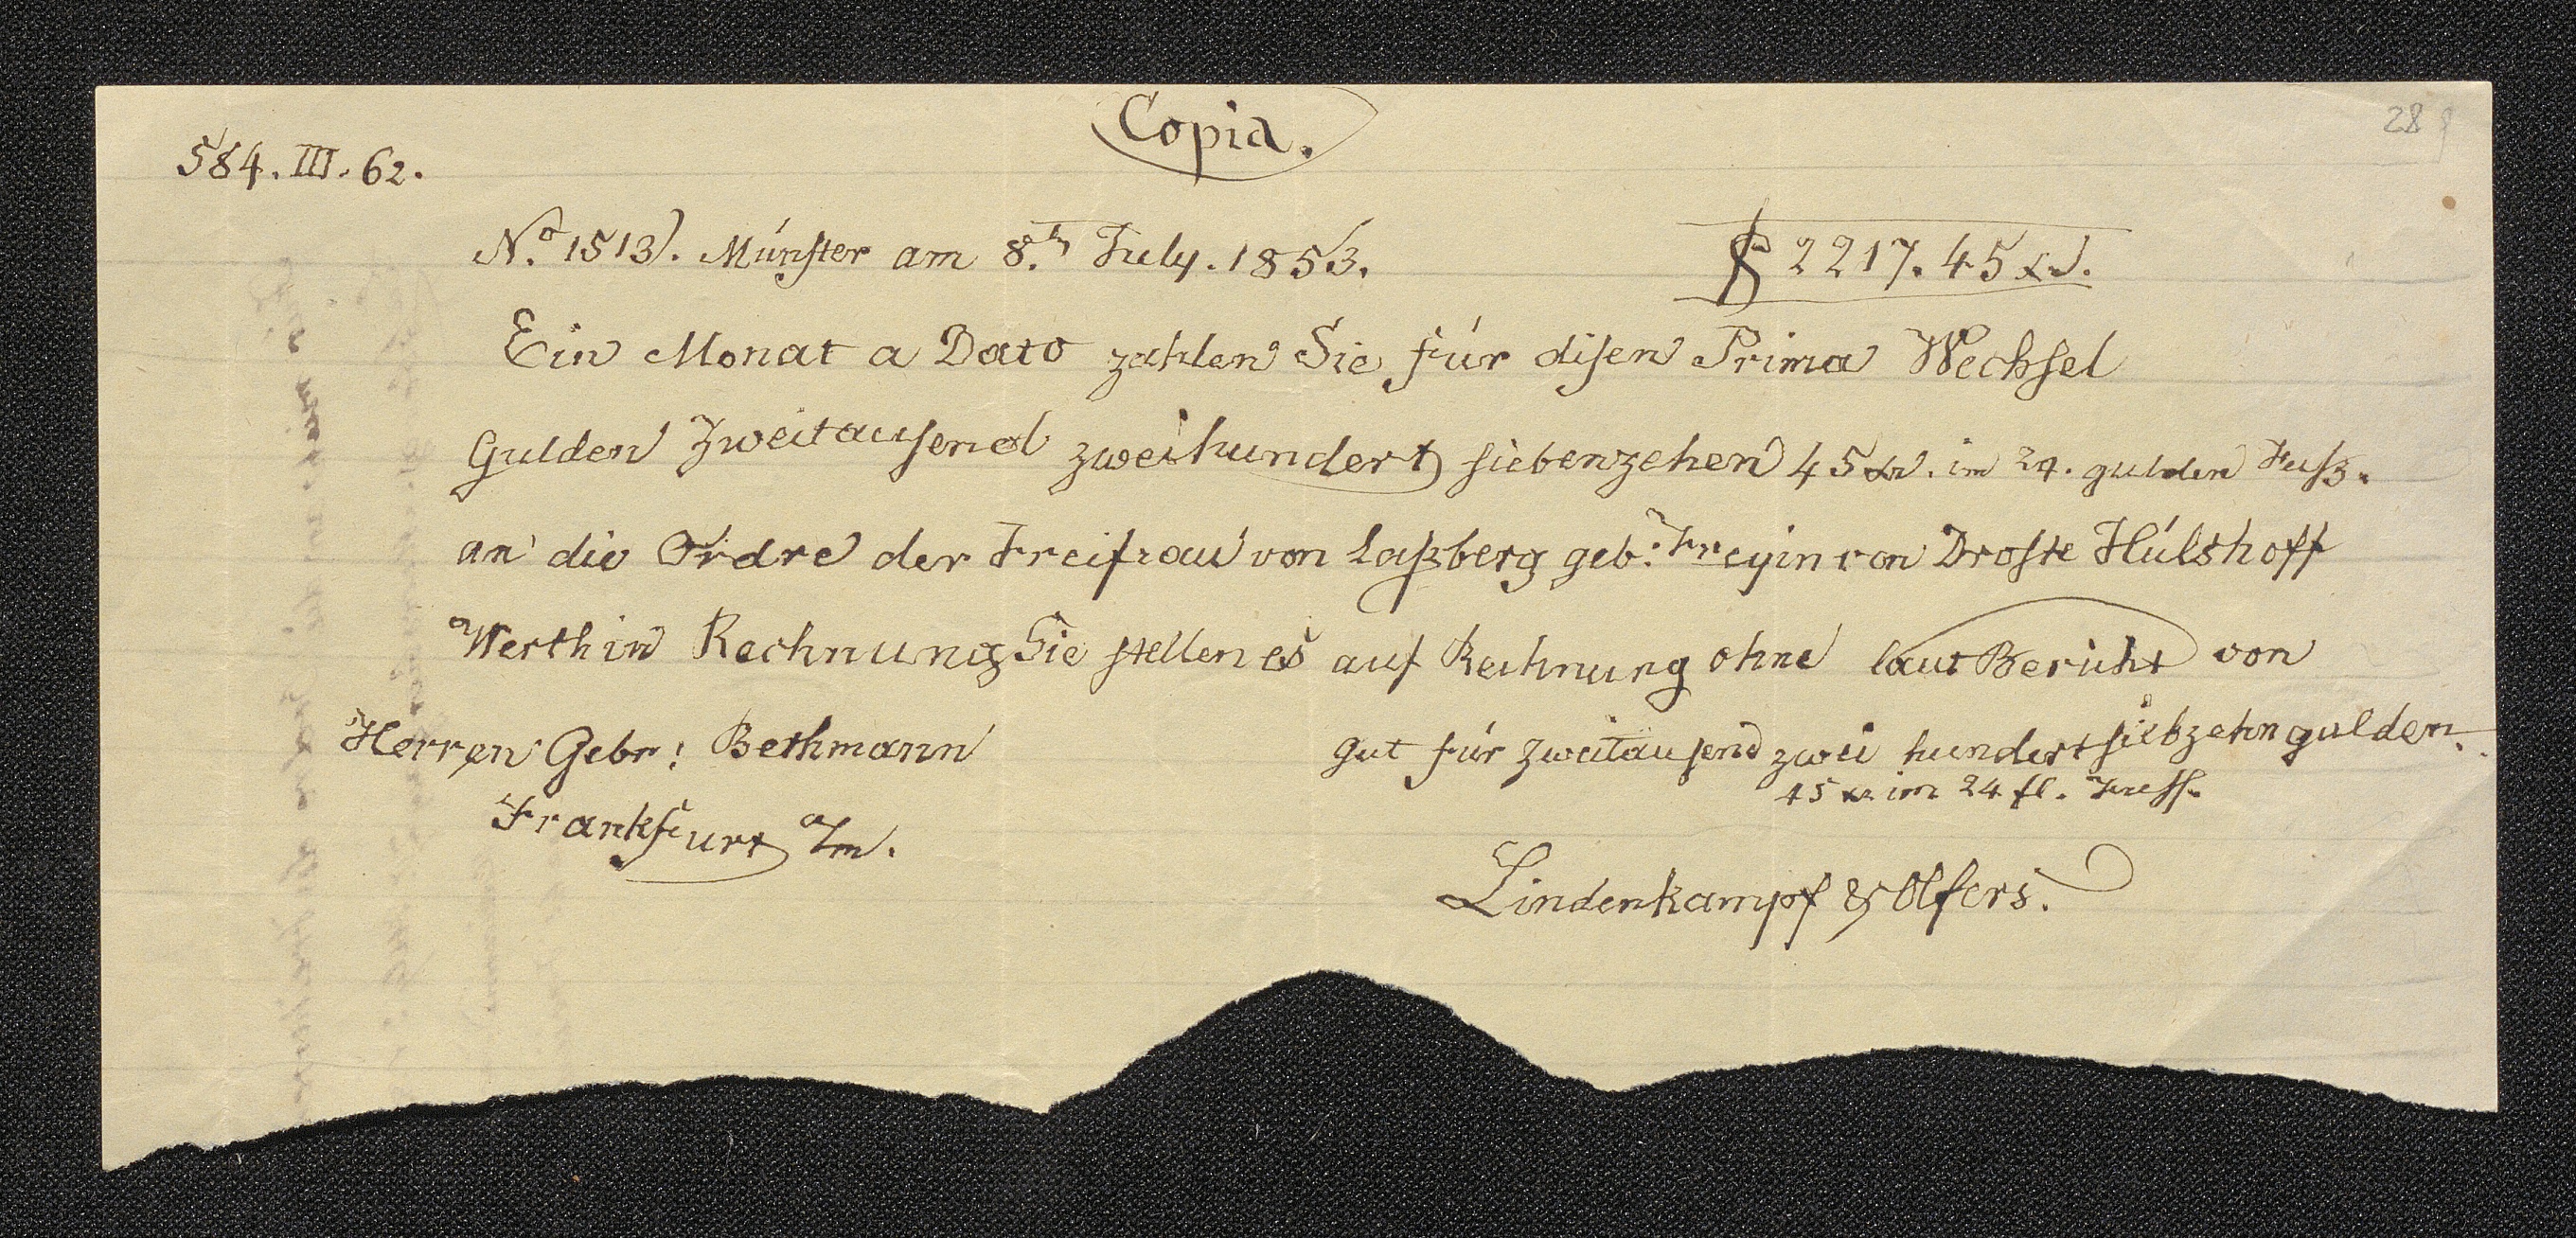 Copia.
28
584. III. 62.
No. 1513). Münster am 8.ten July. 1853. f 2217. 45 xr.
Ein Monat a Dato zahlen Sie für disen Prima Wechsel
Gulden Zweitausend zweihundert siebenzehen 45 xr. im 24. gulden Fuß.
an die Ordre der Freifrau von Laßberg geb: Freyin von Droste Hülshoff
Werth in Rechnung Sie stellen es auf Rechnung ohne laut Bericht von
Herren Gebr: Bethmann gut für Zweitausend zwei hundert siebzehn gulden.
45 xr im 24 fl. Fuss.
Frankfurt a/m.
Lindenkampf & Olfers.